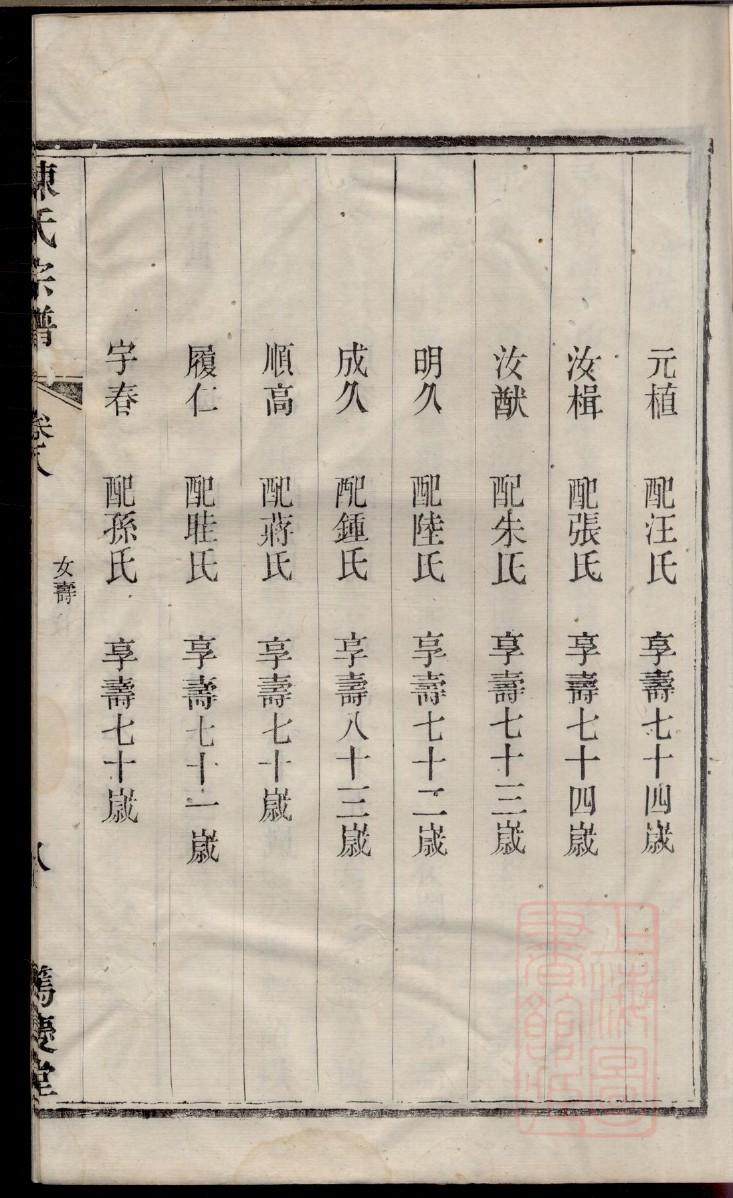 元植 配汪氏 享壽七十四歲
汝楫 配張氏 享壽七十四歲
汝猷 配朱氏 享壽七十三歲
明久 配陸氏 享壽七十二歲
成久 配鍾氏 享壽八十三歲
順高 配蔣氏 享壽七十歲
履仁 配眭氏 享壽七十一歲
宇春 配孫氏 享壽七十歲
陳氏宗譜 卷八 女壽 八 篤慶堂
上海圖書館藏